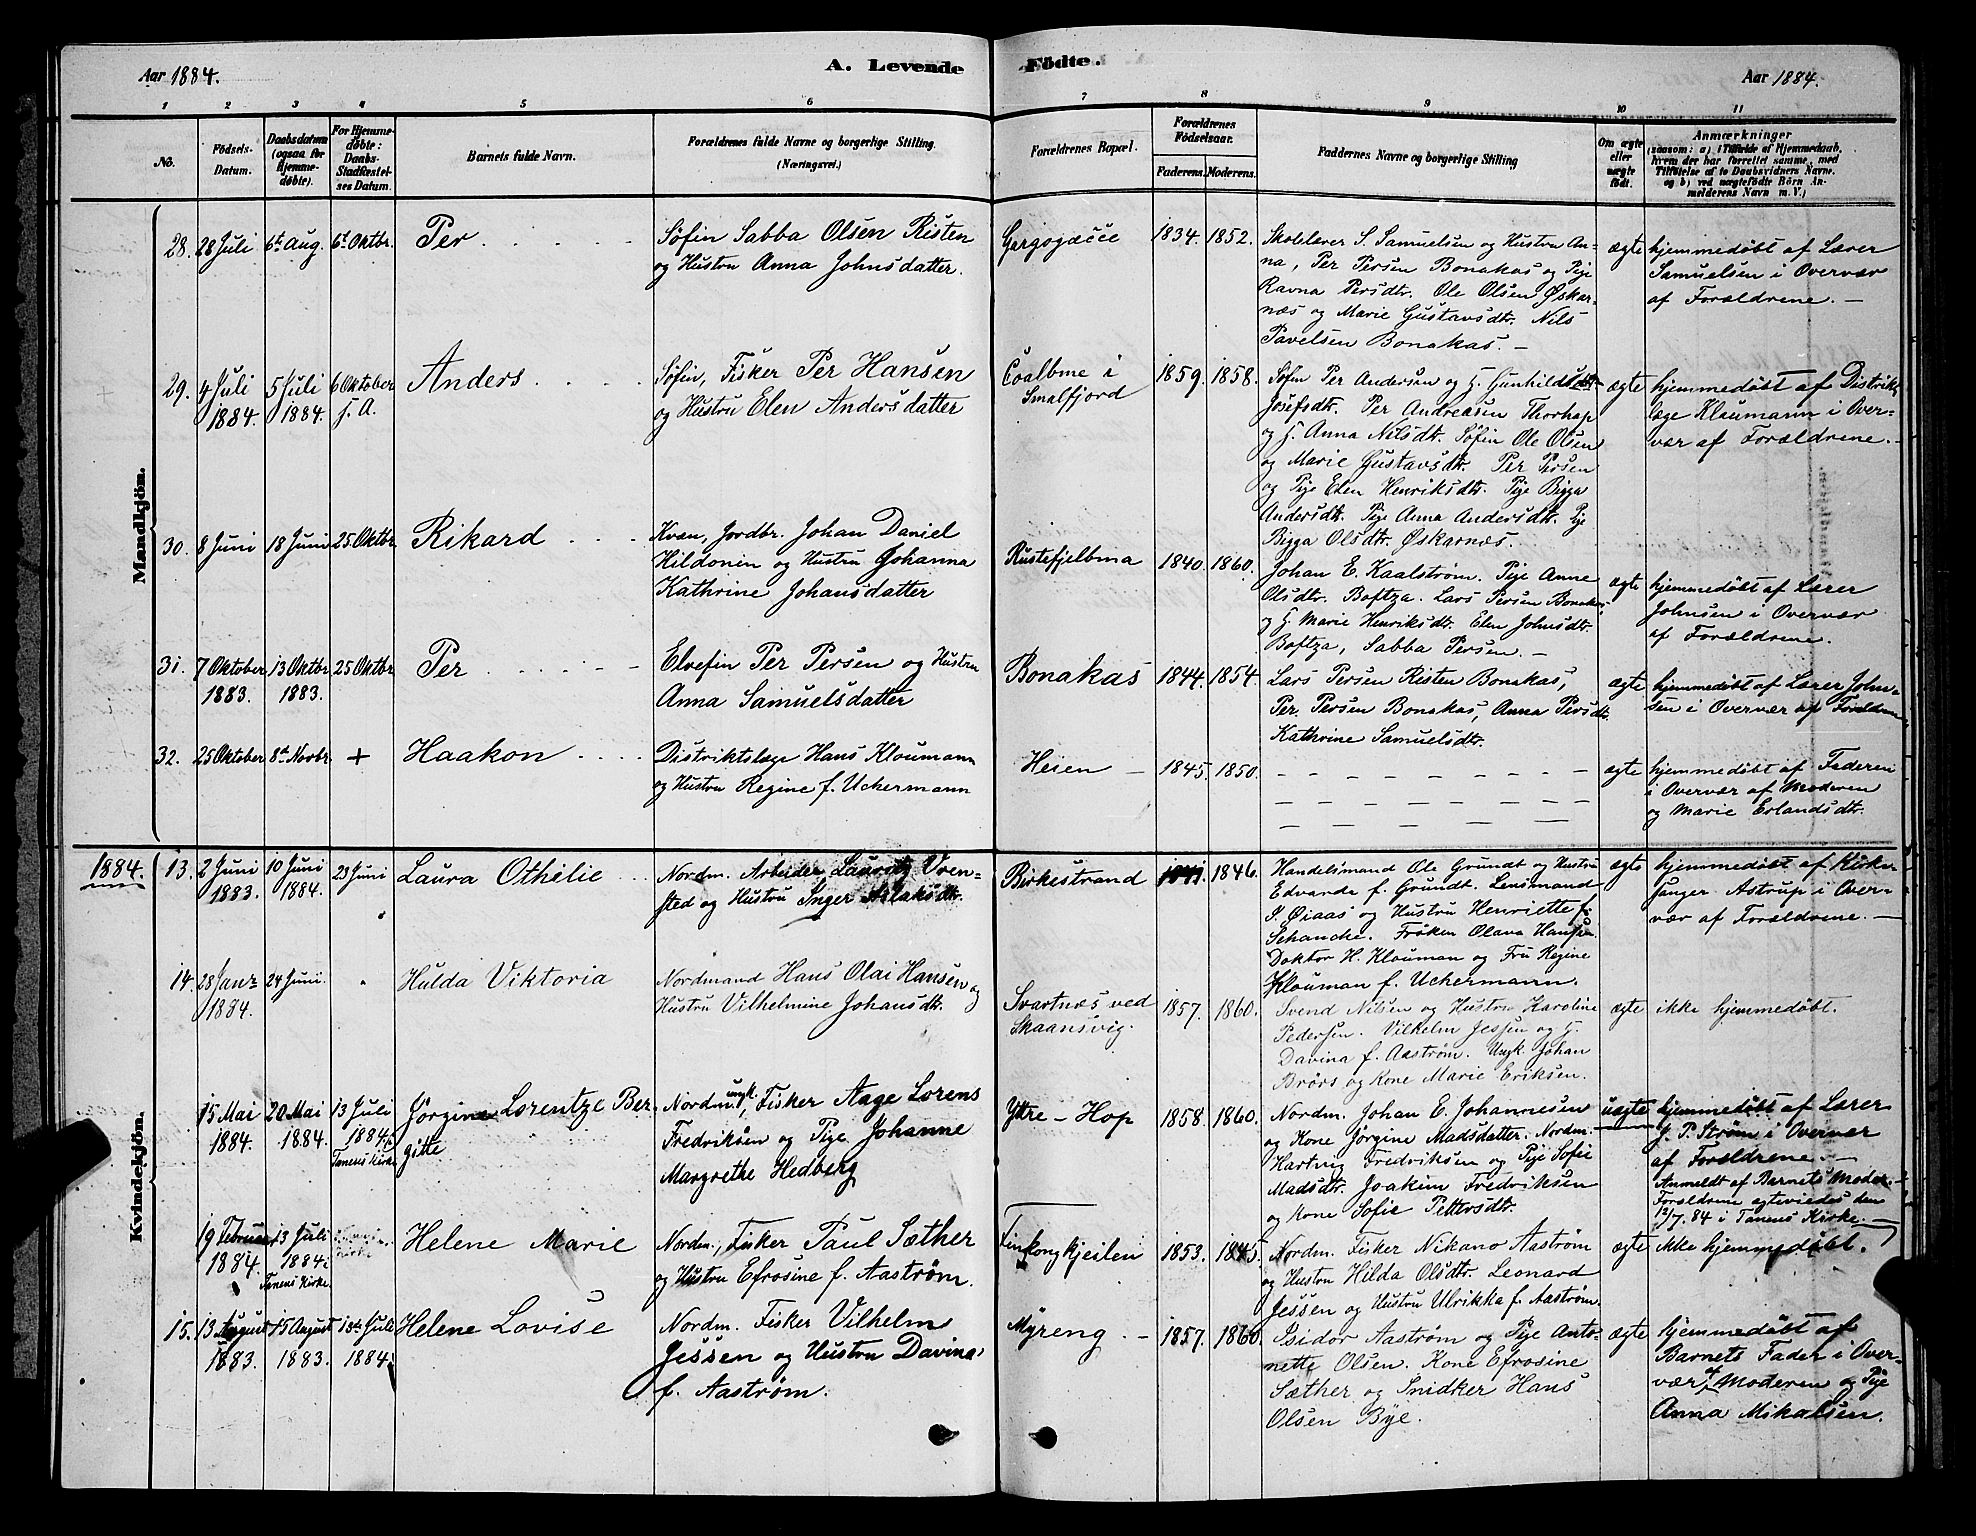 Aar 1884. A. Levende Födte. Aar 1884.
1 2 3 4 5 6 7 8 9 10 11
No.
Födsels-
Datum.
Daabsdatum
(ogsaa for
Hjemme-
döbte).
For Hjemme-
döbte:
Daabs-
Stadfæstel-
ses Datum.
Barnets fulde Navn.
Forældrenes fulde Navne og borgerlige Stilling.
(Næringsvei.)
Forældrenes Bopæl.
Forældrenes
Födselsaar.
Faderens. Moderens.
Faddernes Navne og borgerlige Stilling
Om ægte
eller
uægte
födt.
Anmærkninger
(saasom: a) i Tilfælde af Hjemmedaab,
hvem der har forrettet samme, med
Tilföielse af to Daabsvidners Navne,
og b) ved uægtefödte Börn An-
melderens Navn m. V.)
Mandkjön.
28. 28 Juli 6te Aug. 6t Oktbr. Per
Søfin Sabba Olsen Risten
og Hustru Anna Johnsdatter.
Gargogæcce 1834. 1852.
Skolelærer S. Samuelsen og Hustru An-
na, Per Persen Bonakas og Pige
Ravna Persdtr. Ole Olsen Øskar-
næs og Marie Gustavsdtr. Nils
Pavelsen Bonakas. —
ægte
hjemmedøbt af Lærer
Samuelsen i Overvær
af Forældrene. —
29. 4 Juli 5 Juli 6 Oktober Anders
1884. 1884. f. A.
Søfin, Fisker Per Hansen
og Hustru Elen Andersdatter
Coalbme i
Smalfjord
1859. 1858.
Søfin Per Andersen og H. Gunhild
Josefsdtr. Per Andreasen Thorhap
og H. Anna Nilsdtr. Søfin Ole Olsen
og Marie Gustavsdtr. Per Persen
og Pige Elen Henriksdtr. Pige Bigga
Andersdtr. Pige Anna Andersdtr. Pge
Bigga Olsdtr. Øskarnæs.
ægte
hjemmedøbt af Distrikts
læge Kloumann i Over-
vær af Forældrene. —
30. 8 Juni 18 Juni 25 Oktbr. Rikard
Kvæn, Jordbr. Johan Daniel
Hildonen og Hustru Johanna
Kathrine Johansdatter
Rustefjelbma 1840. 1860.
Johan E. Kaalstrøm. Pige Anne
Olsdtr. Boftza. Lars Persen Bonakas
og H. Marie Henriksdtr. Elen Johnsdtr.
Boftza, Sabba Persen. —
ægte
hjemmedøbt af Lærer
Johnsen i Overvær
af Forældrene.
31. 7 Oktober 13 Oktbr 25 Oktbr Per
1883. 1883.
Elvefin Per Persen og Hustru
Anna Samuelsdatter
Bonakas 1844. 1854.
Lars Persen Risten Bonakas,
Per Persen Bonakas, Anna Persdtr.
Kathrine Samuelsdtr.
ægte
hjemmedøbt af Lærer John-
sen i Overvær af Forældrene
32. 25 Oktober 8de Novbr. + Haakon
Distriktslæge Hans Kloumann
og Hustru Regine f. Uchermann
Heien — 1845. 1850.
ægte
hjemmedøbt af Faderen
i Overvær af Moderen
og Marie Erlandsdtr.
Kvindekjön.
1884. 13. 2 Juni 10 Juni 23 Juni Laura Othilie
1883. 1884.
Nordm. Arbeider Lauritz Vren-
sted og Hustru Inger Aslaksdtr.
Birkestrand 1846.
Handelsmand Ole Grundt og Hustru
Edvarda f. Grundt. Lensmand
S. Øiaas og Hustru Henriette f.
Schancke. Frøken Olava Hansen
Doktor H. Klouman og Fru Regine
Klouman f. Uchermann.
ægte
hjemmedøbt af Kirke-
sanger Astrup i Over-
vær af Forældrene. —
14. 28 Janr 24 Juni. Hulda Viktoria
1884.
Nordmand Hans Olai Hansen og
Hustru Vilhelmine Johansdtr.
Svartnæs ved
Skaansvig.
1857. 1860.
Svend Nilsen og Hustru Karoline
Pedersen. Vilhelm Jessen og H.
Davina f. Aastrøm. Ungk. Johan
Brörs og Kone Marie Eriksen.
ægte ikke hjemmedøbt.
15 Mai 20 Mai 13 Juli Jörgine Lorentze Ber
1884. 1884. 1884 i gitte
Tanens Kirke
Nordm. ungk., Fisker Aage Lorens
Fredriksen og Pige Johanne
Margrethe Hedberg
Yttre-Hop 1858. 1860.
Nordm. Johan E. Johannesen
og Kone Jörgine Madsdatter. Nordm.
Hartvig Fredriksen og Pige Sofie
Madsdtr. Joakim Fredriksen
og Kone Sofie Pettersdtr.
uægte
hjemmedøbt af Lærer
J. P. Strøm i Overvær
af Forældrene. —
Anmeldt af Barnets Moder. —
Forældrene ægteviedes den
12/7. 84 i Tanens Kirke. —
19 Februar 13 Juli Helene Marie
1884. 1884 i
Tanens Kirke.
Nordm., Fisker Paul Sæther
og Hustru Efrosine f. Aastrøm.
Finkongkjeilen 1853. 1845.
Nordm. Fisker Nikano Aastrøm
og Hustru Hilda Olsdtr. Leonard
Jessen og Hustru Ulrikka f. Aastrøm.
ægte ikke hjemmedøbt.
15. 13 August 15 August 13de Juli Helene Lovise
1883. 1883. 1884.
Nordm. Fisker Vilhelm
Jessen og Hustru Davina
f. Aastrøm.
Myreng. — 1857. 1860
Isidor Aastrøm og Pige Anto-
nette Olsen. Kone Efrosine
Sæther og Snidker Hans
Olsen Bye.
ægte
hjemmedøbt af
Barnets Fader i Over-
vær af Moderen og Pige
Anna Mikalsen.